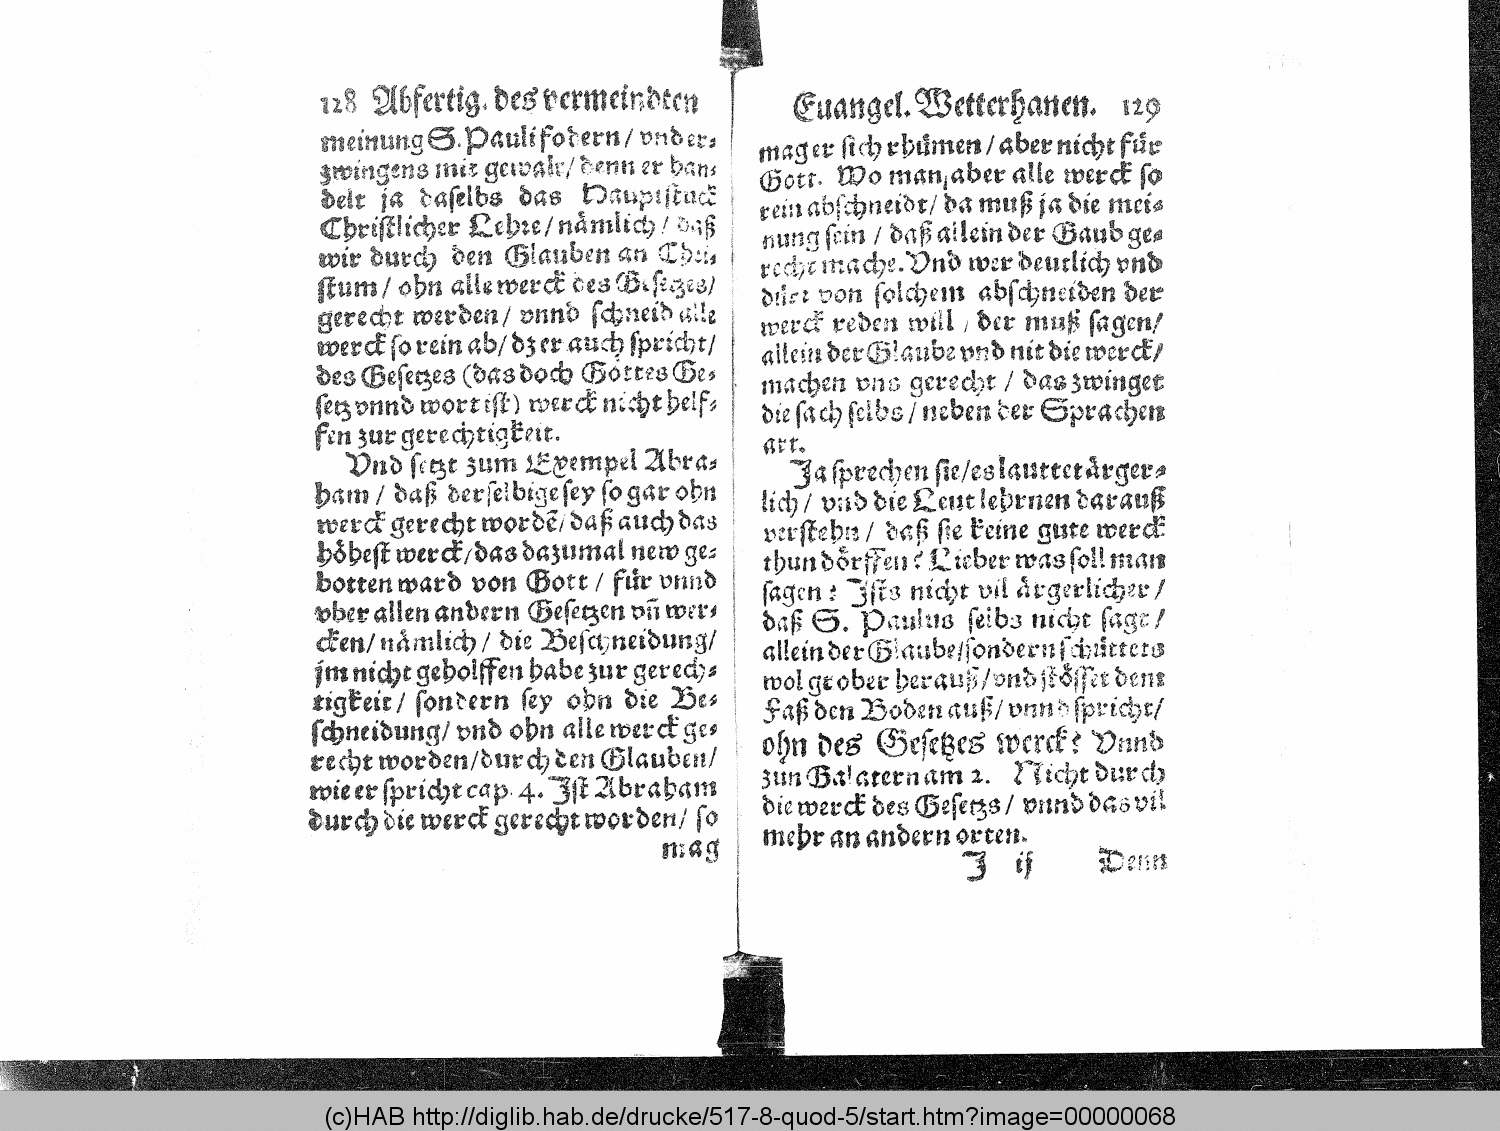 128 Abfertig. des vermeindten
meinung S. Pauli fodern / vnd er⸗
zwingens mit gewalt / denn er han⸗
delt ja daselbs das Hauptstuck
Christlicher Lehre / nämlich / daß
wir durch den Glauben an Chri⸗
stum / ohn alle werck des Gesetzes /
gerecht werden / vnnd schneid alle
werck so rein ab / dz er auch spricht /
des Gesetzes (das doch Gottes Ge⸗
setz vnnd wort ist) werck nicht helf⸗
fen zur gerechtigkeit.
Vnd setzt zum Exempel Abra⸗
ham / daß derselbige sey so gar ohn
werck gerecht wordē / daß auch das
höhest werck / das dazumal new ge⸗
botten ward von Gott / für vnnd
vber allen andern Gesetzen vñ wer⸗
cken / nämlich / die Beschneidung /
jm nicht geholffen habe zur gerech⸗
tigkeit / sondern sey ohn die Be⸗
schneidung / vnd ohn alle werck ge⸗
recht worden / durch den Glauben /
wie er spricht cap. 4. Ist Abraham
durch die werck gerecht worden / so
mag
Euangel. Wetterhanen. 129
mag er sich rhümen / aber nicht für
Gott. Wo man aber alle werck so
rein abschneidt / da muß ja die mei⸗
nung sein / daß allein der Gaub ge⸗
recht mache. Vnd wer deutlich vnd
dürr von solchem abschneiden der
werck reden will / der muß sagen /
allein der Glaube vnd nit die werck /
machen vns gerecht / das zwinget
die sach selbs / neben der Sprachen
art.
Ja sprechen sie / es lauttet ärger⸗
lich / vnd die Leut lehrnen darauß
verstehn / daß sie keine gute werck
thun dörffen? Lieber was soll man
sagen? Ists nicht vil ärgerlicher /
daß S. Paulus selbs nicht sagt /
allein der Glaube / sondern schüttets
wol grober herauß / vnd stösset dem
Faß den Boden auß / vnnd spricht /
ohn des Gesetzes werck? Vnnd
zun Galatern am 2. Nicht durch
die werck des Gesetzs / vnnd das vil
mehr an andern orten.
J ij Denn
(c)HAB http://diglib.hab.de/drucke/517-8-quod-5/start.htm?image=00000068